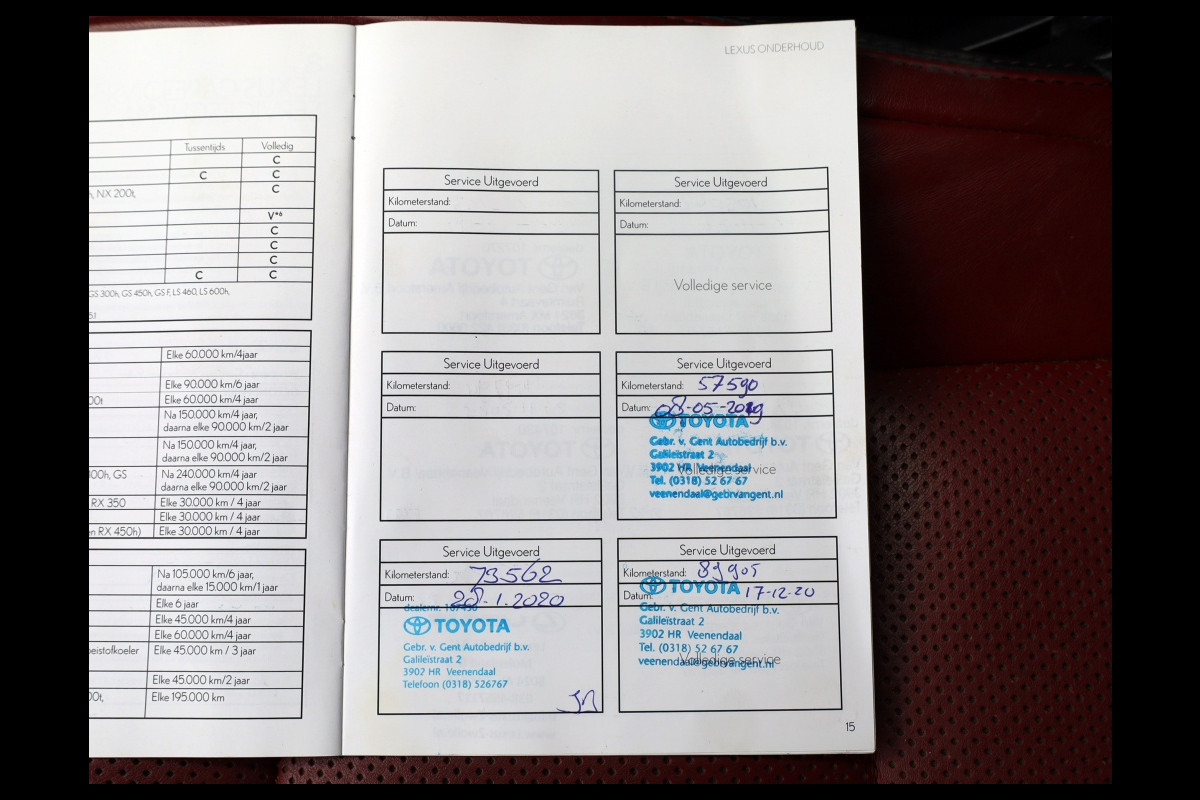 Tussentijds Volledig
C
C C
h, NX 200t, C
V*6
C
C
C
C C
GS 300h, GS 450h, GS F, LS 460, LS 600h,
51
Elke 60.000 km/4jaar
Elke 90.000 km/6 jaar
00t Elke 60.000 km/4 jaar
Na 150.000 km/4 jaar,
daarna elke 90.000 km/2 jaar
Na 150.000 km/4 jaar,
daarna elke 90.000 km/2 jaar
300h, GS Na 240.000 km/4 jaar
daarna elke 90.000 km/2 jaar
RX 350 Elke 30.000 km / 4 jaar
Elke 30.000 km / 4 jaar
en RX 450h) Elke 30.000 km / 4 jaar
Na 105.000 km/6 jaar,
daarna elke 15.000 km/1 jaar
Elke 6 jaar
Elke 45.000 km/4 jaar
Elke 60.000 km/4 jaar
oeistofkoeler Elke 45.000 km / 3 jaar
Elke 45.000 km/2 jaar
00t, Elke 195.000 km
LEXUS ONDERHOUD
Service Uitgevoerd
Kilometerstand:
Datum:
Service Uitgevoerd
Kilometerstand:
Datum:
Volledige service
Service Uitgevoerd
Kilometerstand:
Datum:
Service Uitgevoerd
Kilometerstand: 57590
Datum: 08-05-2019
TOYOTA
Gebr. v. Gent Autobedrijf b.v.
Galileïstraat 2
3902 HR Veenendaal
Volledige service
Tel. (0318) 52 67 67
veenendaal@gebrvangent.nl
Service Uitgevoerd
Kilometerstand: 73562
Datum: 28-1-2020
TOYOTA
Gebr. v. Gent Autobedrijf b.v.
Galileïstraat 2
3902 HR Veenendaal
Telefoon (0318) 526767
Service Uitgevoerd
Kilometerstand: 89905
Datum: 17-12-20
TOYOTA
Gebr. v. Gent Autobedrijf b.v.
Galileïstraat 2
3902 HR Veenendaal
Tel. (0318) 52 67 67
Volledige service
veenendaal@gebrvangent.nl
15